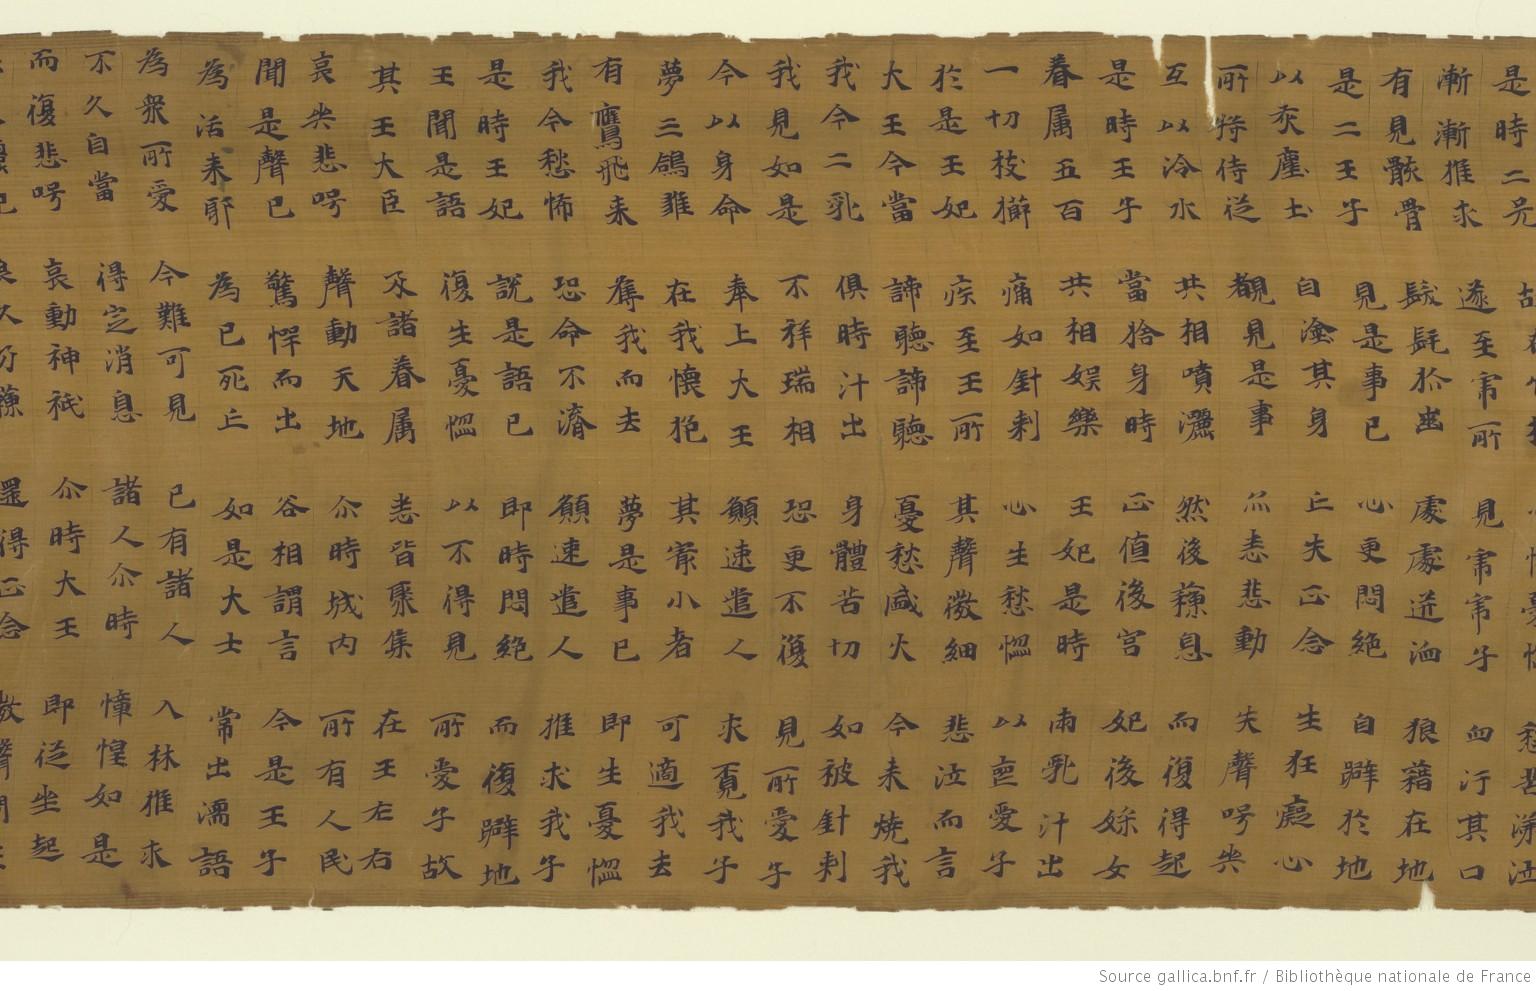 是時二兄
漸漸推求 遂至虎所 見虎虎子 血汙其口
有見骸骨 髮毛爪齒 處處迸血 狼藉在地
是二王子 見是事已 心更悶絕 自躃於地
以灰塵土 自塗其身 亡失正念 生狂癡心
所將侍從 覩見是事 亦悉悲動 失聲号哭
互以冷水 共相噴灑 然後穌息 而復得起
是時王子 當捨身時 正值後宮 妃後婇女
眷属五百 共相娛樂 王妃是時 兩乳汁出
一切枝節 痛如針刺 心生愁惱 以喪愛子
於是王妃 疾至王所 其聲微細 悲泣而言
大王今當 諦聽諦聽 憂愁盛火 今来燒我
我今二乳 俱時汁出 身體苦切 如被針刺
我見如是 不祥瑞相 恐更不復 見所愛子
今以身命 奉上大王 願速遣人 求覓我子
夢三鴿雛 在我懷抱 其最小者 可適我去
有鷹飛来 奪我而去 夢是事已 即生憂惱
我今愁怖 恐命不濟 願速遣人 推求我子
是時王妃 說是語已 即時悶絕 而復躃地
王聞是語 復生憂惱 以不得見 所愛子故
其王大臣 及諸眷属 悉皆聚集 在王左右
哀哭悲号 聲動天地 尒時城内 所有人民
聞是聲已 驚愕而出 各相謂言 今是王子
為活来耶 為已死亡 如是大士 常出濡語
為衆所愛 今難可見 已有諸人 入林推求
不久自當 得定消息 諸人尒時 慞惶如是
而復悲号 哀動神祇 尒時大王 即從坐起
還得正念
Source gallica.bnf.fr / Bibliothèque nationale de France